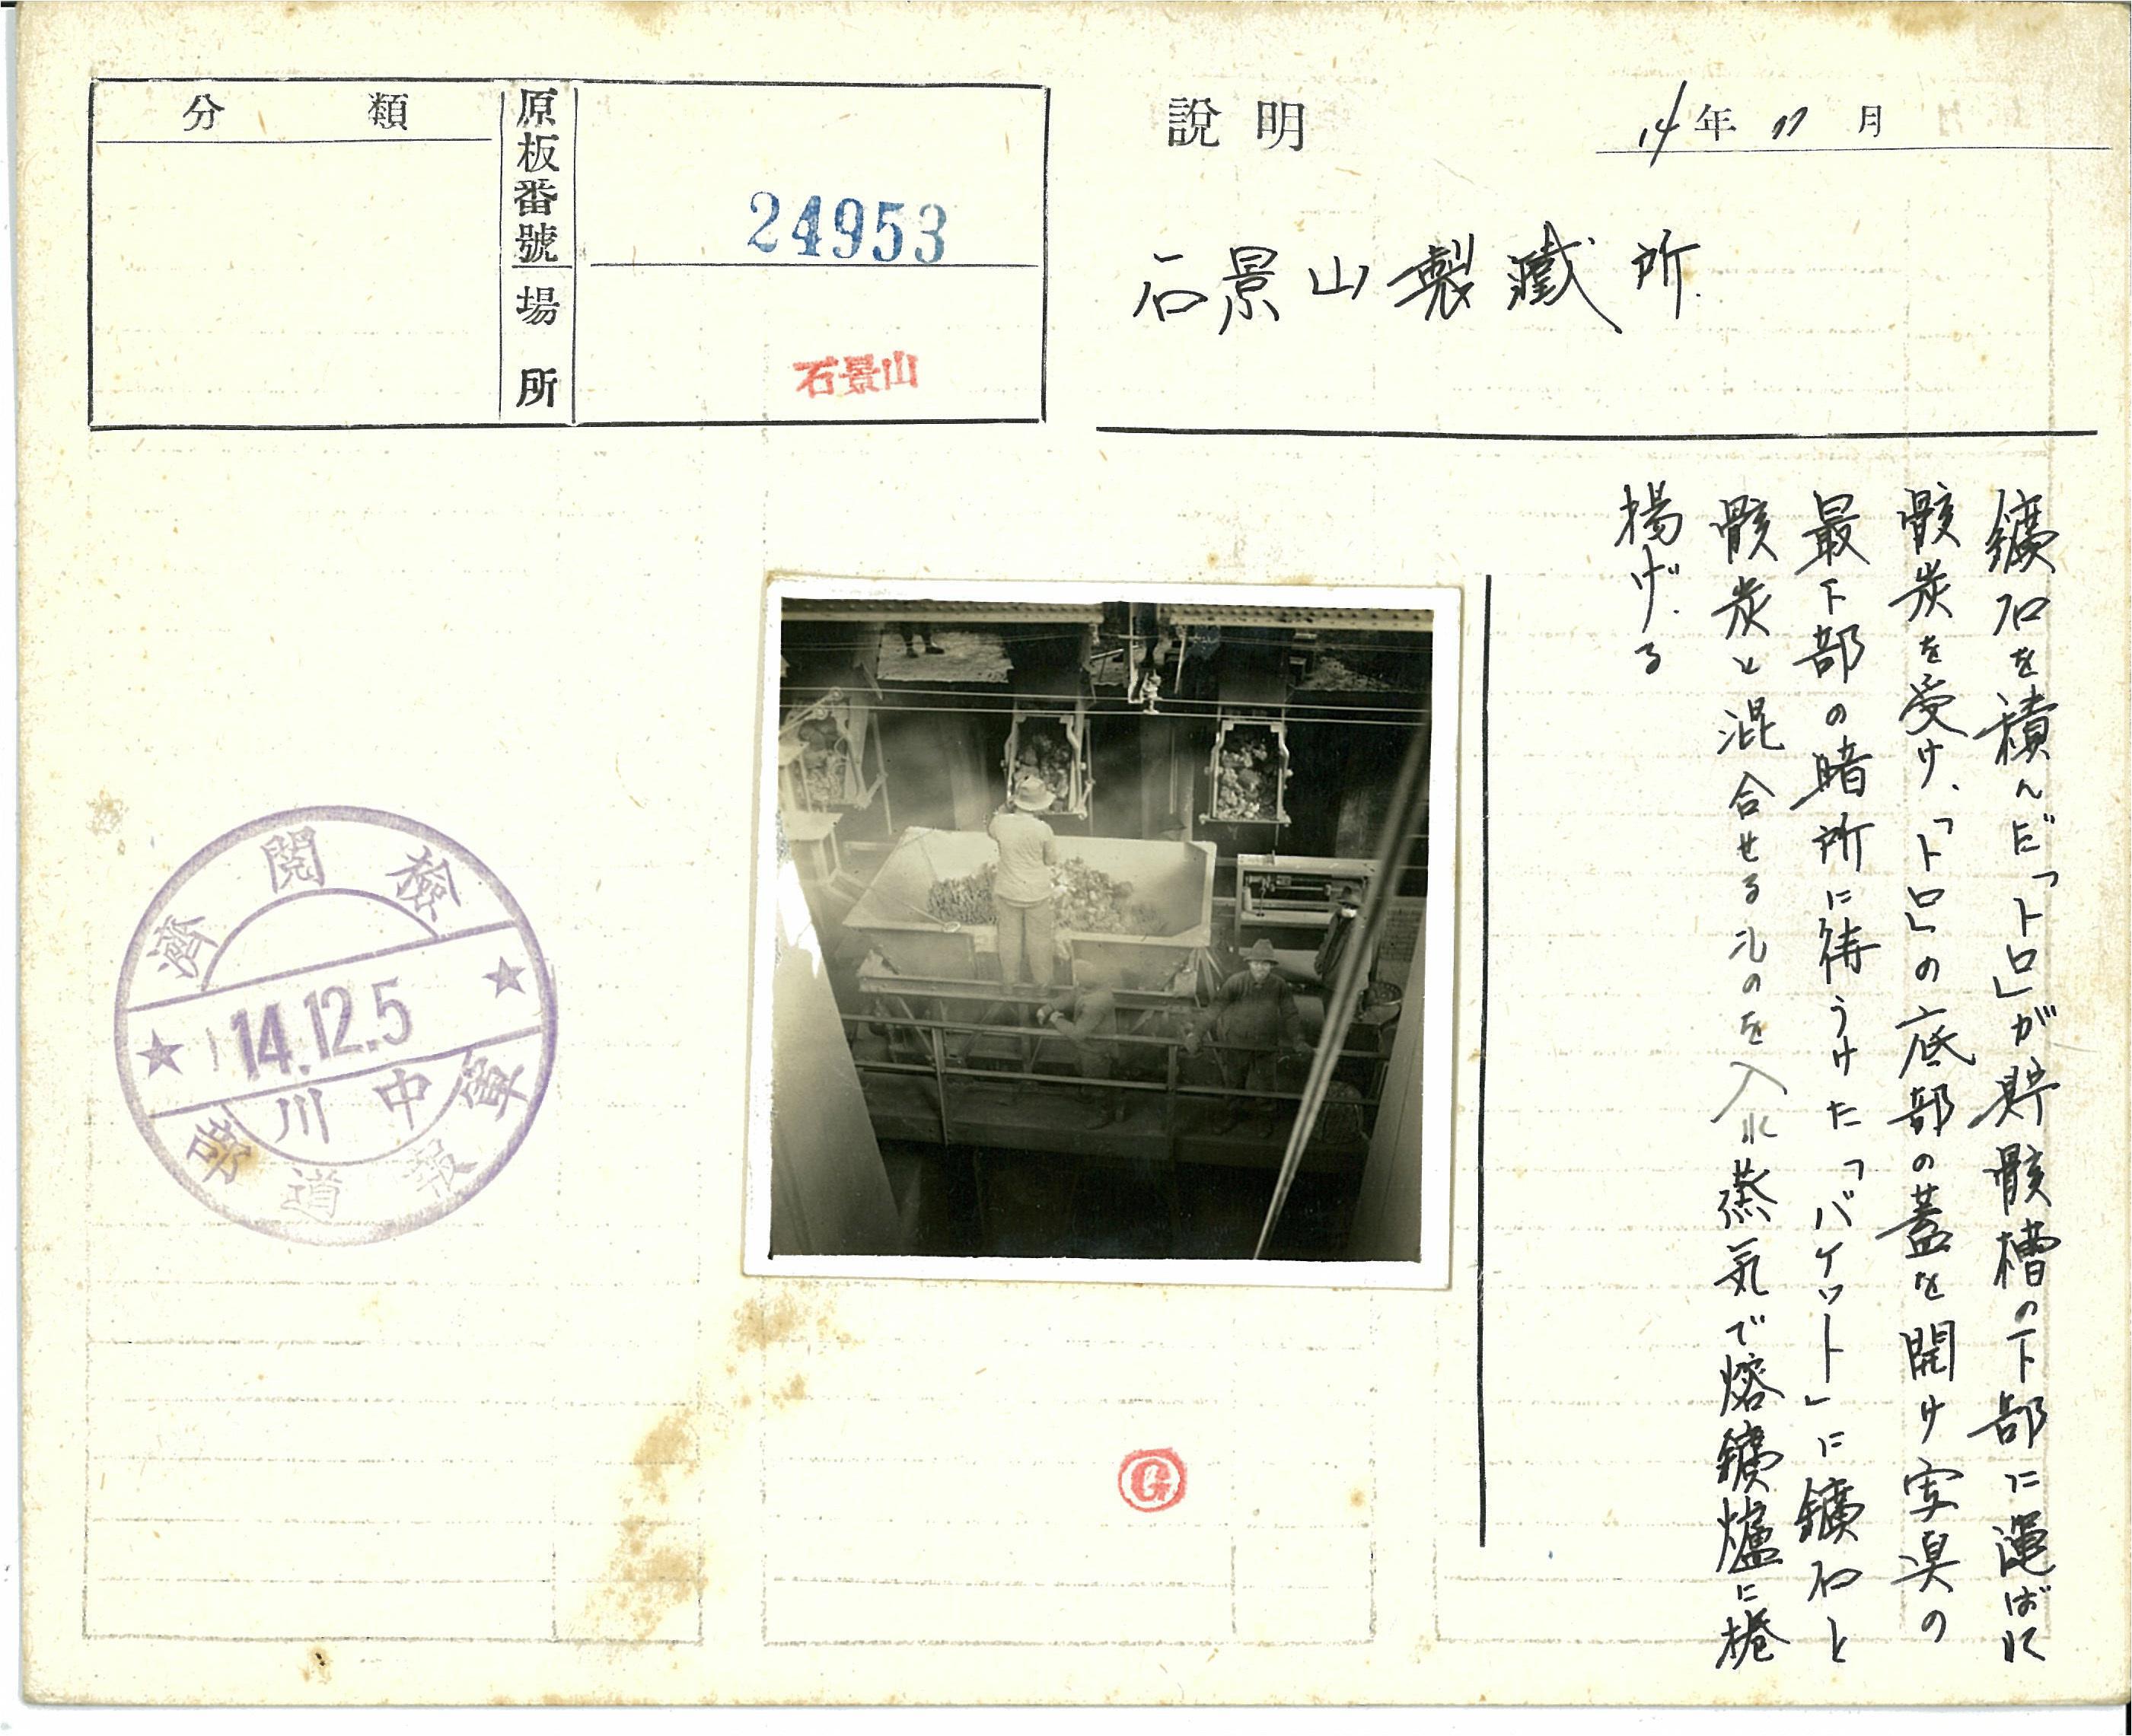 分類
原板番號
24953
場所
石景山
説明
14年11月
石景山製鐵所
鑛石を積んだ「トロ」が貯骸槽の下部に運ばれ
骸炭を受け、「トロ」の底部の蓋を開け写真の
最下部の暗所に待うけた「バケット」に鑛石と
骸炭と混合せるものを入れ蒸気で熔鑛爐に捲
揚げる
檢閲濟
14.12.5
中川
軍報道部
G